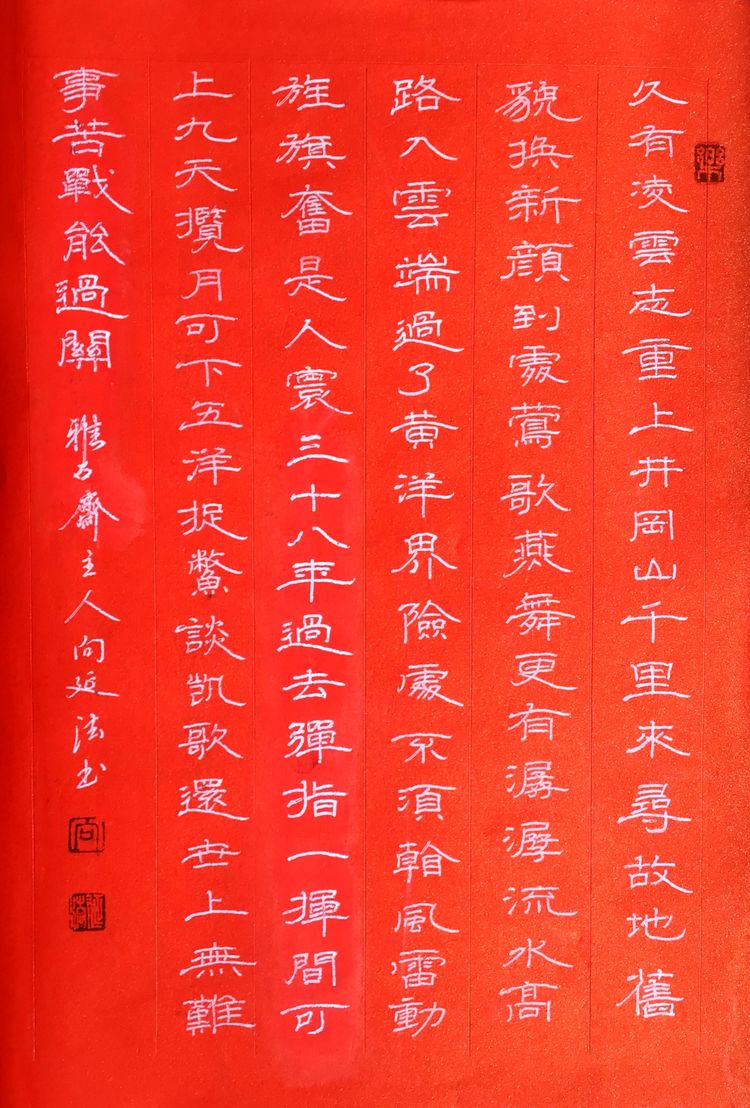 久有凌雲志重上井岡山千里來尋故地舊
貌換新顏到處鶯歌燕舞更有潺潺流水高
路入雲端過了黃洋界險處不須看風雷動
旌旗奮是人寰三十八年過去彈指一揮間可
上九天攬月可下五洋捉鱉談凱歌還世上無難
事苦戰能過關 雅古齋主人向延法书
向